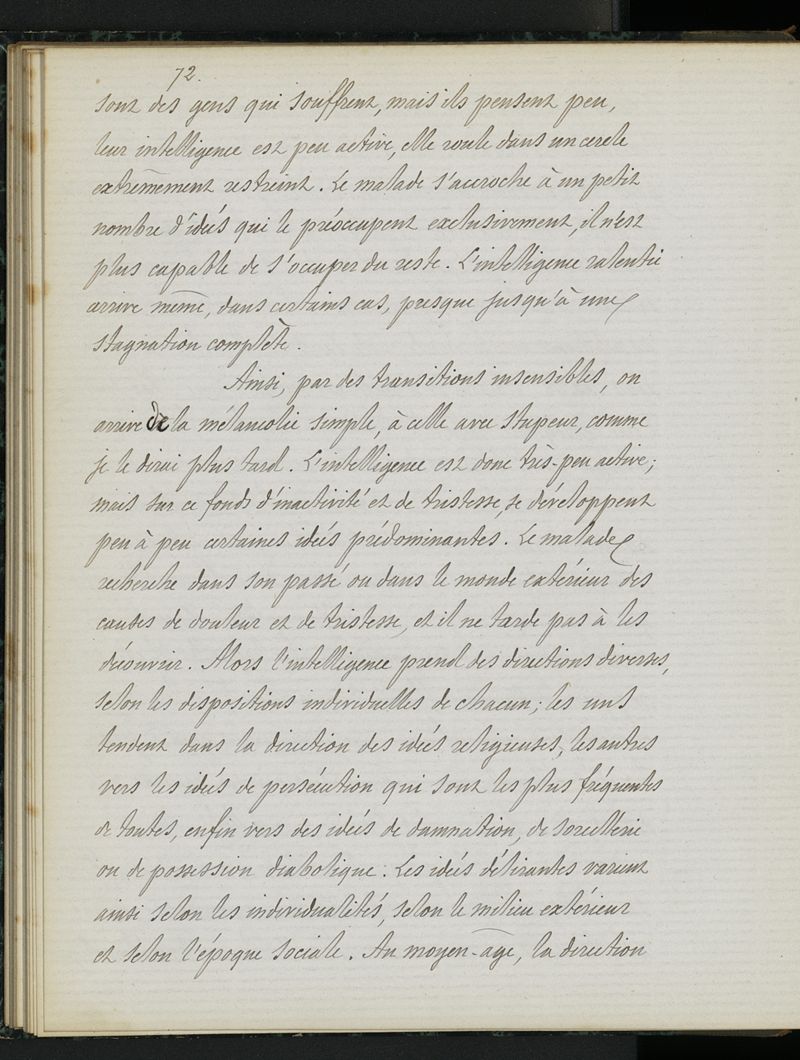 72.
sont des gens qui souffrent, mais ils pensent peu,
leur intelligence est peu active, elle roule dans un cercle
extrêmement restreint. Le malade s'accroche à un petit
nombre d'idées qui le préoccupent exclusivement, il n'est
plus capable de s'occuper du reste. L'intelligence ralentie
arrive même, dans certains cas, presque jusqu'à une
stagnation complète.
Ainsi, par des transitions insensibles, on
arrive de la mélancolie simple, à celle avec stupeur, comme
je le dirai plus tard. L'intelligence est donc très-peu active;
mais sur ce fonds d'inactivité et de tristesse, se développent
peu à peu certaines idées prédominantes. Le malade
recherche dans son passé ou dans le monde extérieur des
causes de douleur et de tristesse, et il ne tarde pas à les
découvrir. Alors l'intelligence prend des directions diverses,
selon les dispositions individuelles de chacun; les uns
tendent dans la direction des idées religieuses, les autres
vers les idées de persécution qui sont les plus fréquentes
de toutes, enfin vers des idées de damnation, de sorcellerie
ou de possession diabolique. Les idées délirantes varient
ainsi selon les individualités, selon le milieu extérieur
et selon l'époque sociale. Au moyen-âge, la direction